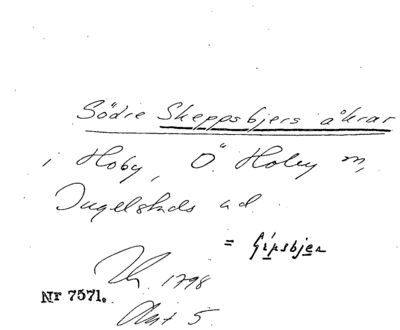 Södre Skeppsbjers åkrar
i Hoby, Ö. Hoby sn,
Ingelstads hd
= Gipsbjer
1798
Nr 7571.
Akt 5.